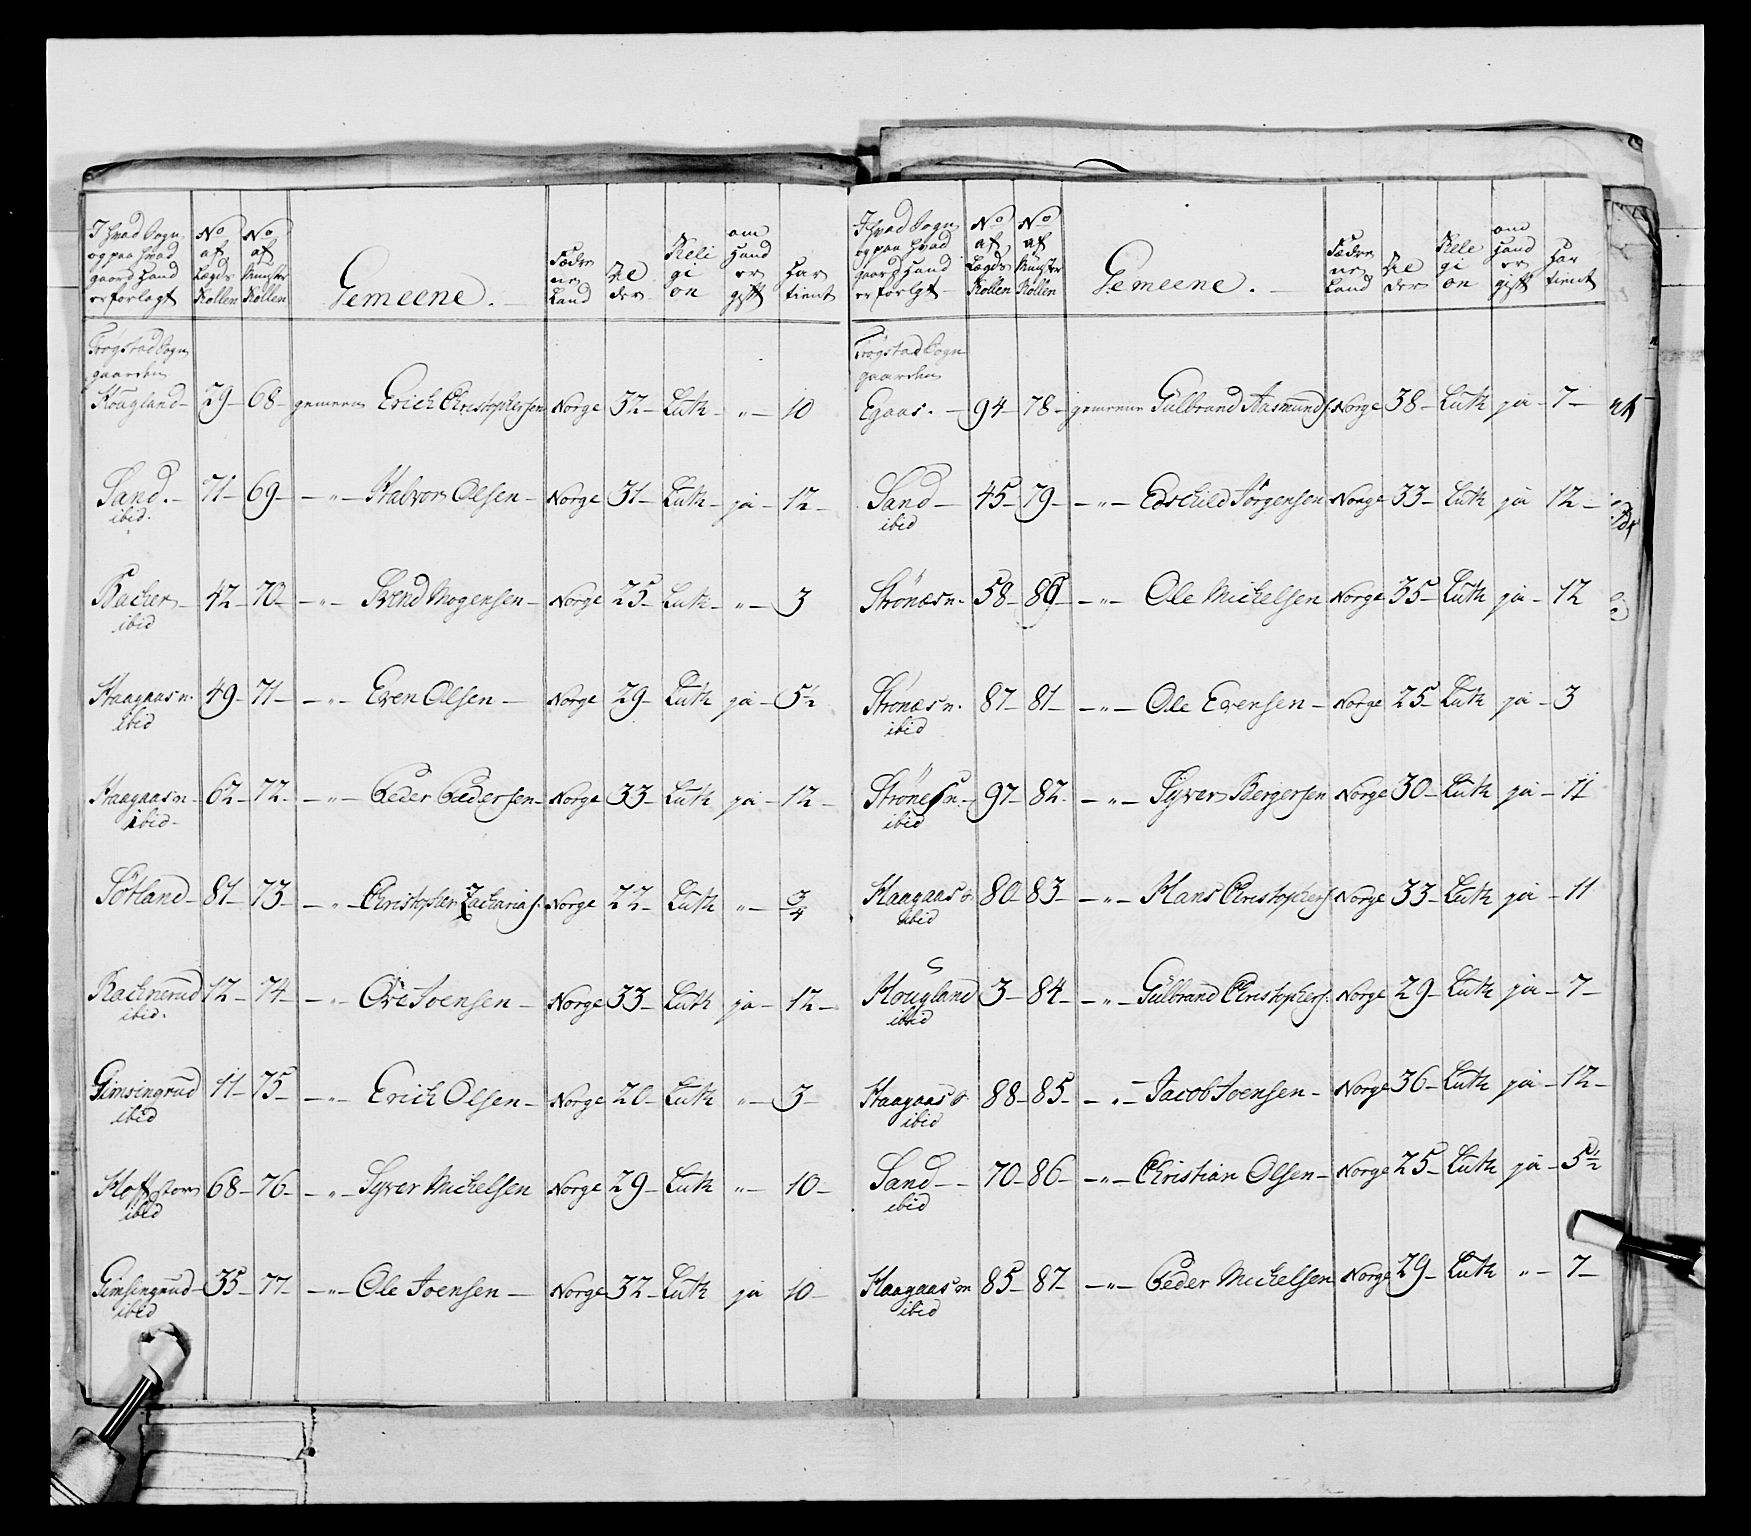 I hvad Sogn og paa hvad gaard hand er forlagt | No af Lægds Rollen | No af Munster Rollen | Gemeene. | Fæderne Land | Al der | Reli gi on | om hand er gift | har tient
Trøgstad Sogn
gaarden
Hougland - 29 - 68 - gemeen Erich Christophersen Norge 32 - Luth - " - 10
Sand. - 71 - 69 - - " - Halvor Olsen - Norge 31 - Luth - ja - 12 -
ibid.
Bacher - 42 - 70 - - " - Svend Mogensen - Norge 25 - Luth - " - 3
ibid
Haagaas n. 49 - 71 - - " - Even Olsen - Norge 29 - Luth ja - 5½
ibid
Haagaas n - 62 - 72 - - " - Peder Pedersen - Norge 33 - Luth ja - 12 -
ibid -
Sötland - 81 - 73 - - " - Christopher Zacharias. Norge 22 - Luth " - 3/4
Rachnerud 12 - 74 - - " - Ole Joensen - Norge 33 - Luth ja - 12 -
ibid.
Gimsingrud 11 - 75 - - " - Erich Olsen - Norge 20 - Luth " - 3 -
ibid
68 - 76 - - " - Syver Michelsen Norge 29 - Luth " - 10 -
ibid
Gimsingrud - 35 - 77 - - " - Ole Joensen - Norge 32 - Luth ja 10 -
ibid
I hvad Sogn og paa hvad gaard hand er forlgt | No af Lægds Rollen | No af Munster Rollen | Gemeene. | Fæderne Land | Al der | Rele gi on | om hand er gift | har tient
Trøgstad Sogn
gaarden
Egaas. - 94 - 78 - gemeene Gulbrand Aasmunds Norge 38 - Luth ja - 7 -
Sand - 45 - 79 - - " - Edschild Jörgensen Norge 33 - Luth ja 12 -
ibid
Strönæs n. 58 - 80 - - " - Ole Michelsen Norge 35 - Luth ja - 12
Strönæs n. 87 - 81 - - " - Ole Evensen - Norge 25 - Luth ja - 3
ibid
Strönes n - 97 - 82 - - " - Syver Bergersen Norge 30 - Luth ja - 11
ibid
Haagaas ø 80 - 83 - - " - Hans Christophers Norge 33 - Luth ja - 11
ibid
Hougland 3 - 84 - - " - Gulbrand Christophers. Norge 29 - Luth ja - 7 -
ibid
Haagaas ø 88 - 85 - - " - Jacob Joensen - Norge 36 - Luth ja - 12 -
ibid
Sand - - 70 - 86 - - " - Christian Olsen - Norge 25 - Luth ja - 5½
ibid
Haagaas 85 - 87 - - " - Peder Michelsen Norge 29 - Luth " - 7 -
ibid